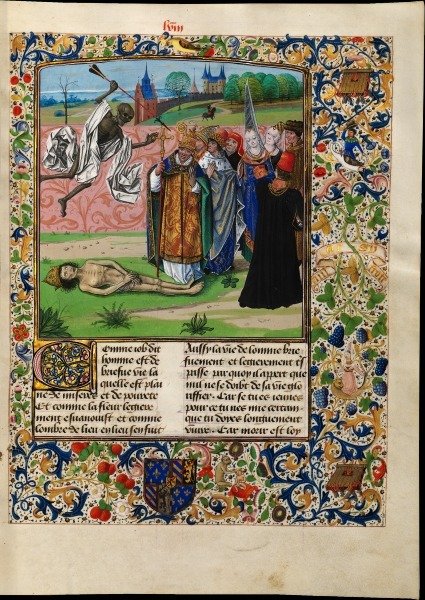 Comme iob dit
homme est de
briefue vie la
quelle est plai
ne de miseres et de pourete
Et comme la fleur legiere
ment esuanouist et comme
lombre de lieu en lieu sen fuit
Aussy la vie de lomme brie
fuement et legierement
passe par quoy il apert que
nul ne se doibt de sa vie glo
riffier. Car se tu es ieunes
pour ce tu nes mie certain
que tu doyes longuement
viure. Car morir est loy